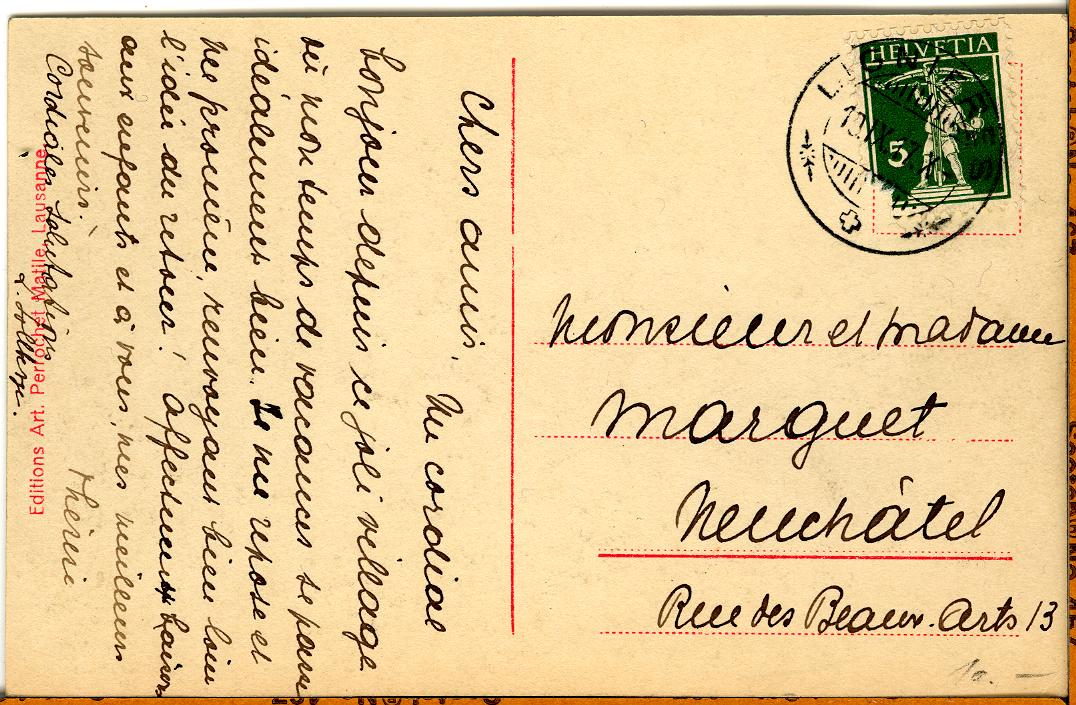 Chers amis,
Un cordial
bonjour depuis ce joli village
où mon temps de vacances se passe
idéalement bien. Je me repose et
me promène, renvoyant bien loin
l'idée du retour! Affectueux baisers
aux enfants et à vous, mes meilleurs
souvenirs.
Thérèse
Cordiales salutations
Editions Art. Perrochet Matile, Lausanne
HELVETIA
5
LIGNIÈRES
10.IX.
Monsieur et Madame
Marguet
Neuchâtel
Rue des Beaux-Arts 13
10.—